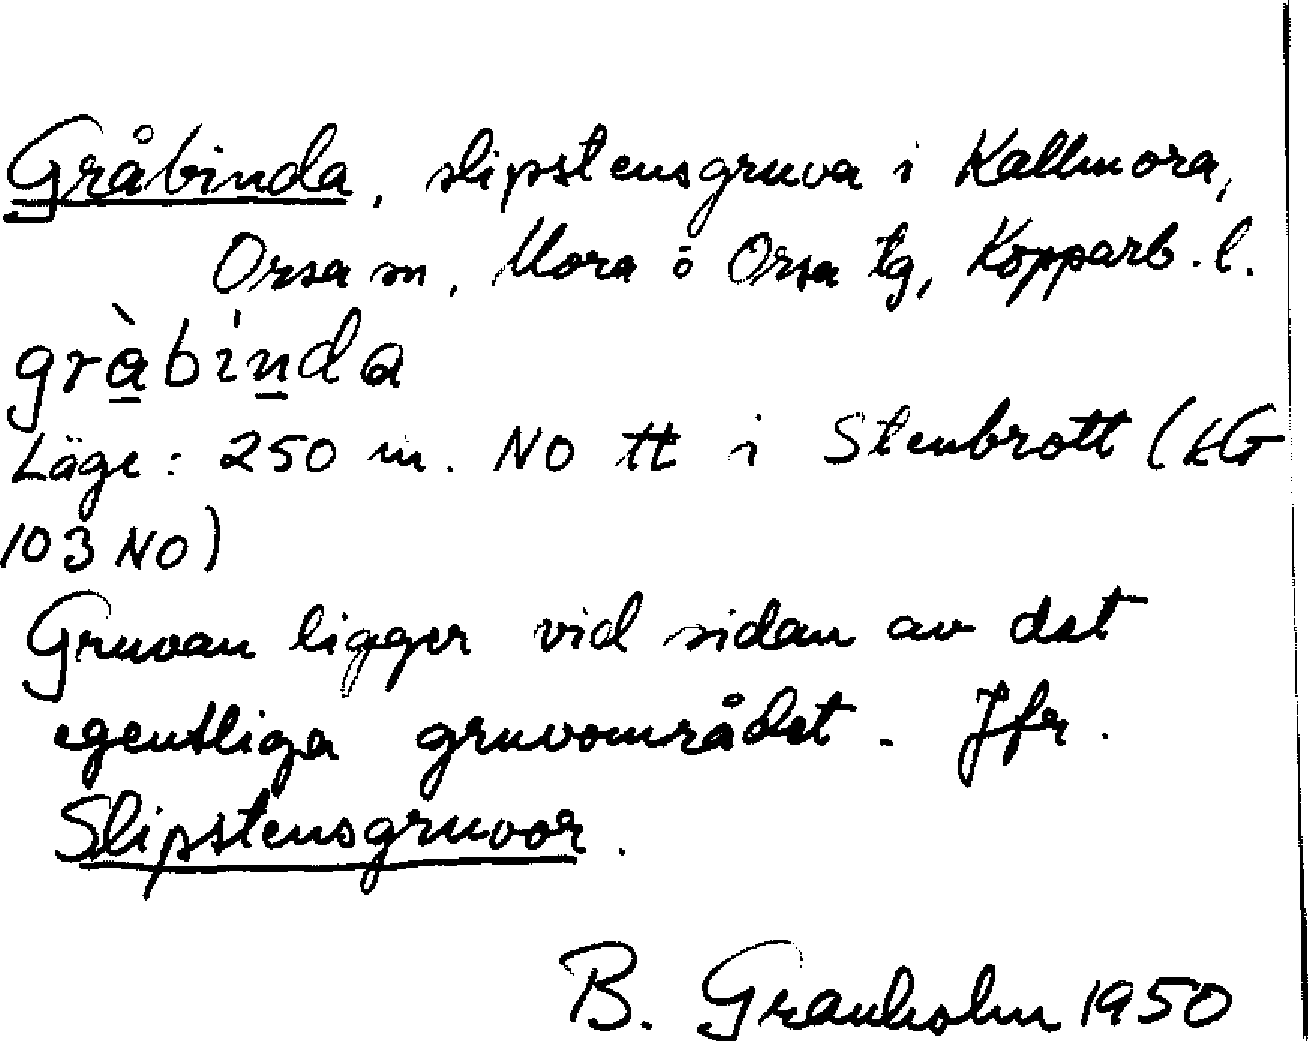 Gråbinda, slipstensgruva i Kallmora,
Orsa sn, Mora o Orsa tg, Kopparb. l.
gràbinda
Läge: 250 m. NO tt i Stenbrott (KG
103 NO)
Gruvan ligger vid sidan av det
egentliga gruvområdet. Jfr.
Slipstensgruvor.
B. Granholm 1950